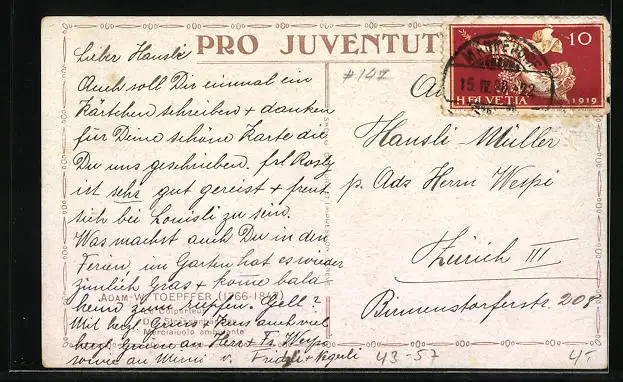 PRO JUVENTUT
#147
10
HELVETIA 1919
15. IV. 20
Lieber Hansli
Auch soll Dir einmal ein
Kärtchen schreiben + danken
für Deine schöne Karte die
Du uns geschrieben. frl Rosly
ist sehr gut gereist + freut
sich bei Louisli zu sein.
Was machst auch Du in den
Ferien, im Garten hat es wieder
ziemlich Gras + komme bald
heim zum helfen. Gell?
ADAM W. TOEPFFER (1766-1847)
Mit herzl. Gruss + Kuss auch viel
Merciaiuolo ambulante
herzl. Grüsse an Herr + Fr. Wespi
sowie an Mimi v. Fridli +
Hansli Müller
p. Ads Herrn Wespi
Zürich III
Binmenstorferstr. 208
43-57
4-